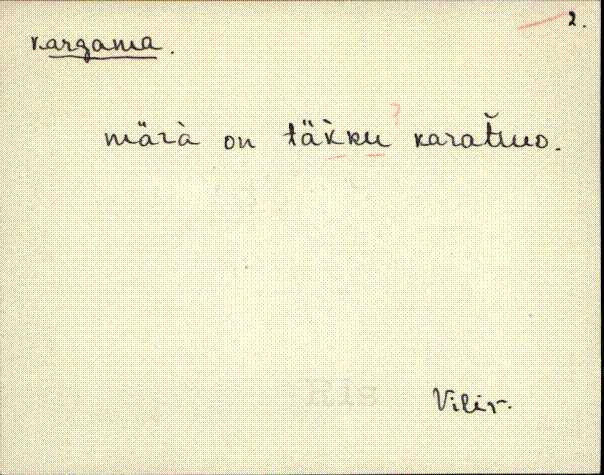 2.
kargama.
märà on täk̀ku karat̆uo.
Ris
Vilir.